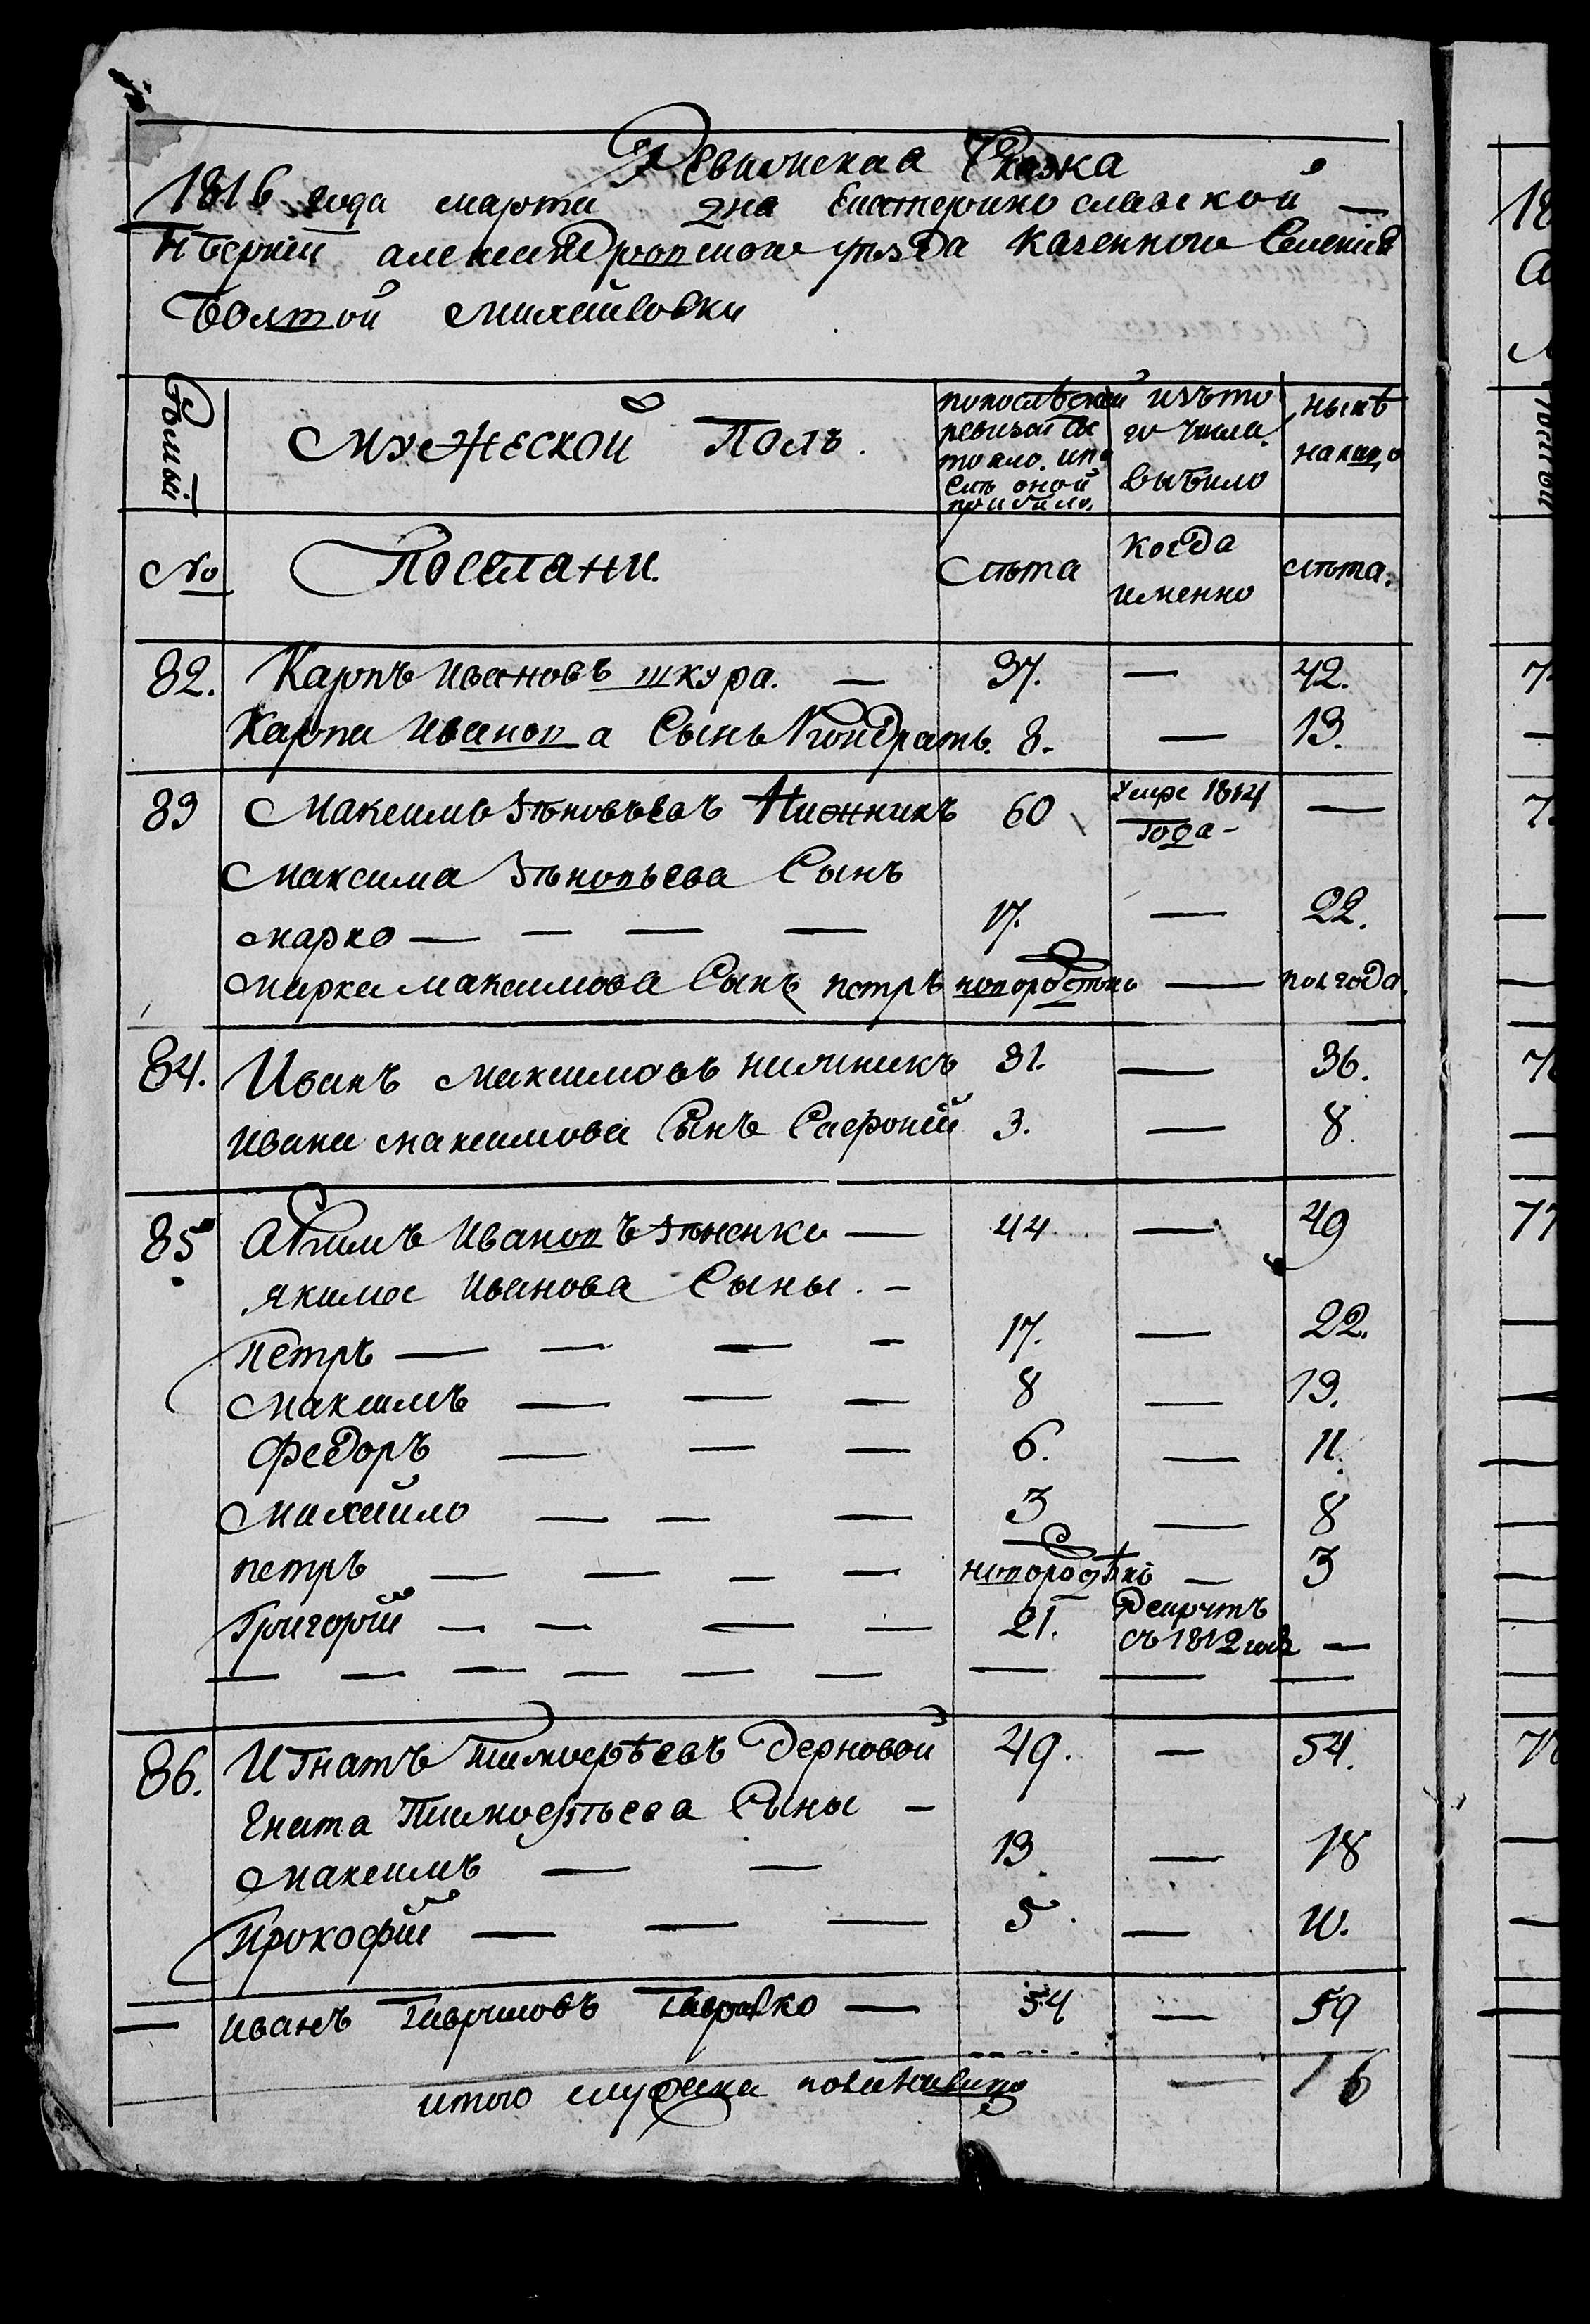 Ревизская Сказка
1816 года марта дня Екатеринославской —
губерній александровского уѣзда казенного Селенія
Болтой михайловки
Семьи
мужеской Полъ.
попослѣдней ревизіи состояло. ипослѣ оной прибыло.
изъ того числа выбыло
нынѣ налицо
№
Поселяни.
лѣта
когда именно
лѣта.
82. Карпъ Ивановъ шкура. — 37. — 42.
Карпа Иванова Сынъ Кондратъ. 8. — 13.
83 Максимъ Зѣновьевъ Нижникъ 60 умре 1814 года — —
Максима Зѣновьева Сынъ
марко — — — — 17. — 22.
марка максимова Сынъ петръ новорожденъ — пол года.
84. Иванъ максимовъ нижникъ 31. — 36.
Ивана максимова Сынъ Сафроній 3. — 8
85 Акимъ Ивановъ Зѣненко — 44 — 49
якима Иванова Сыны. —
Петръ — — — — 17. — 22.
Максимъ — — — 8 — 13.
Федоръ — — — 6. — 11.
Михайло — — — 3 — 8
петръ — — — — новорожденъ — 3
Григорій — — — — 21. Рекрутъ съ 1812 года —
— — — — — — — — —
86. Игнатъ тимофѣевъ Дерновой 49. — 54.
Гната Тимофѣева Сыны —
Максимъ — — 13. — 18
Прокофій — — — 5. — 10.
— Иванъ Гавриловъ — 54 — 59
итого мужеска — 16
18
77